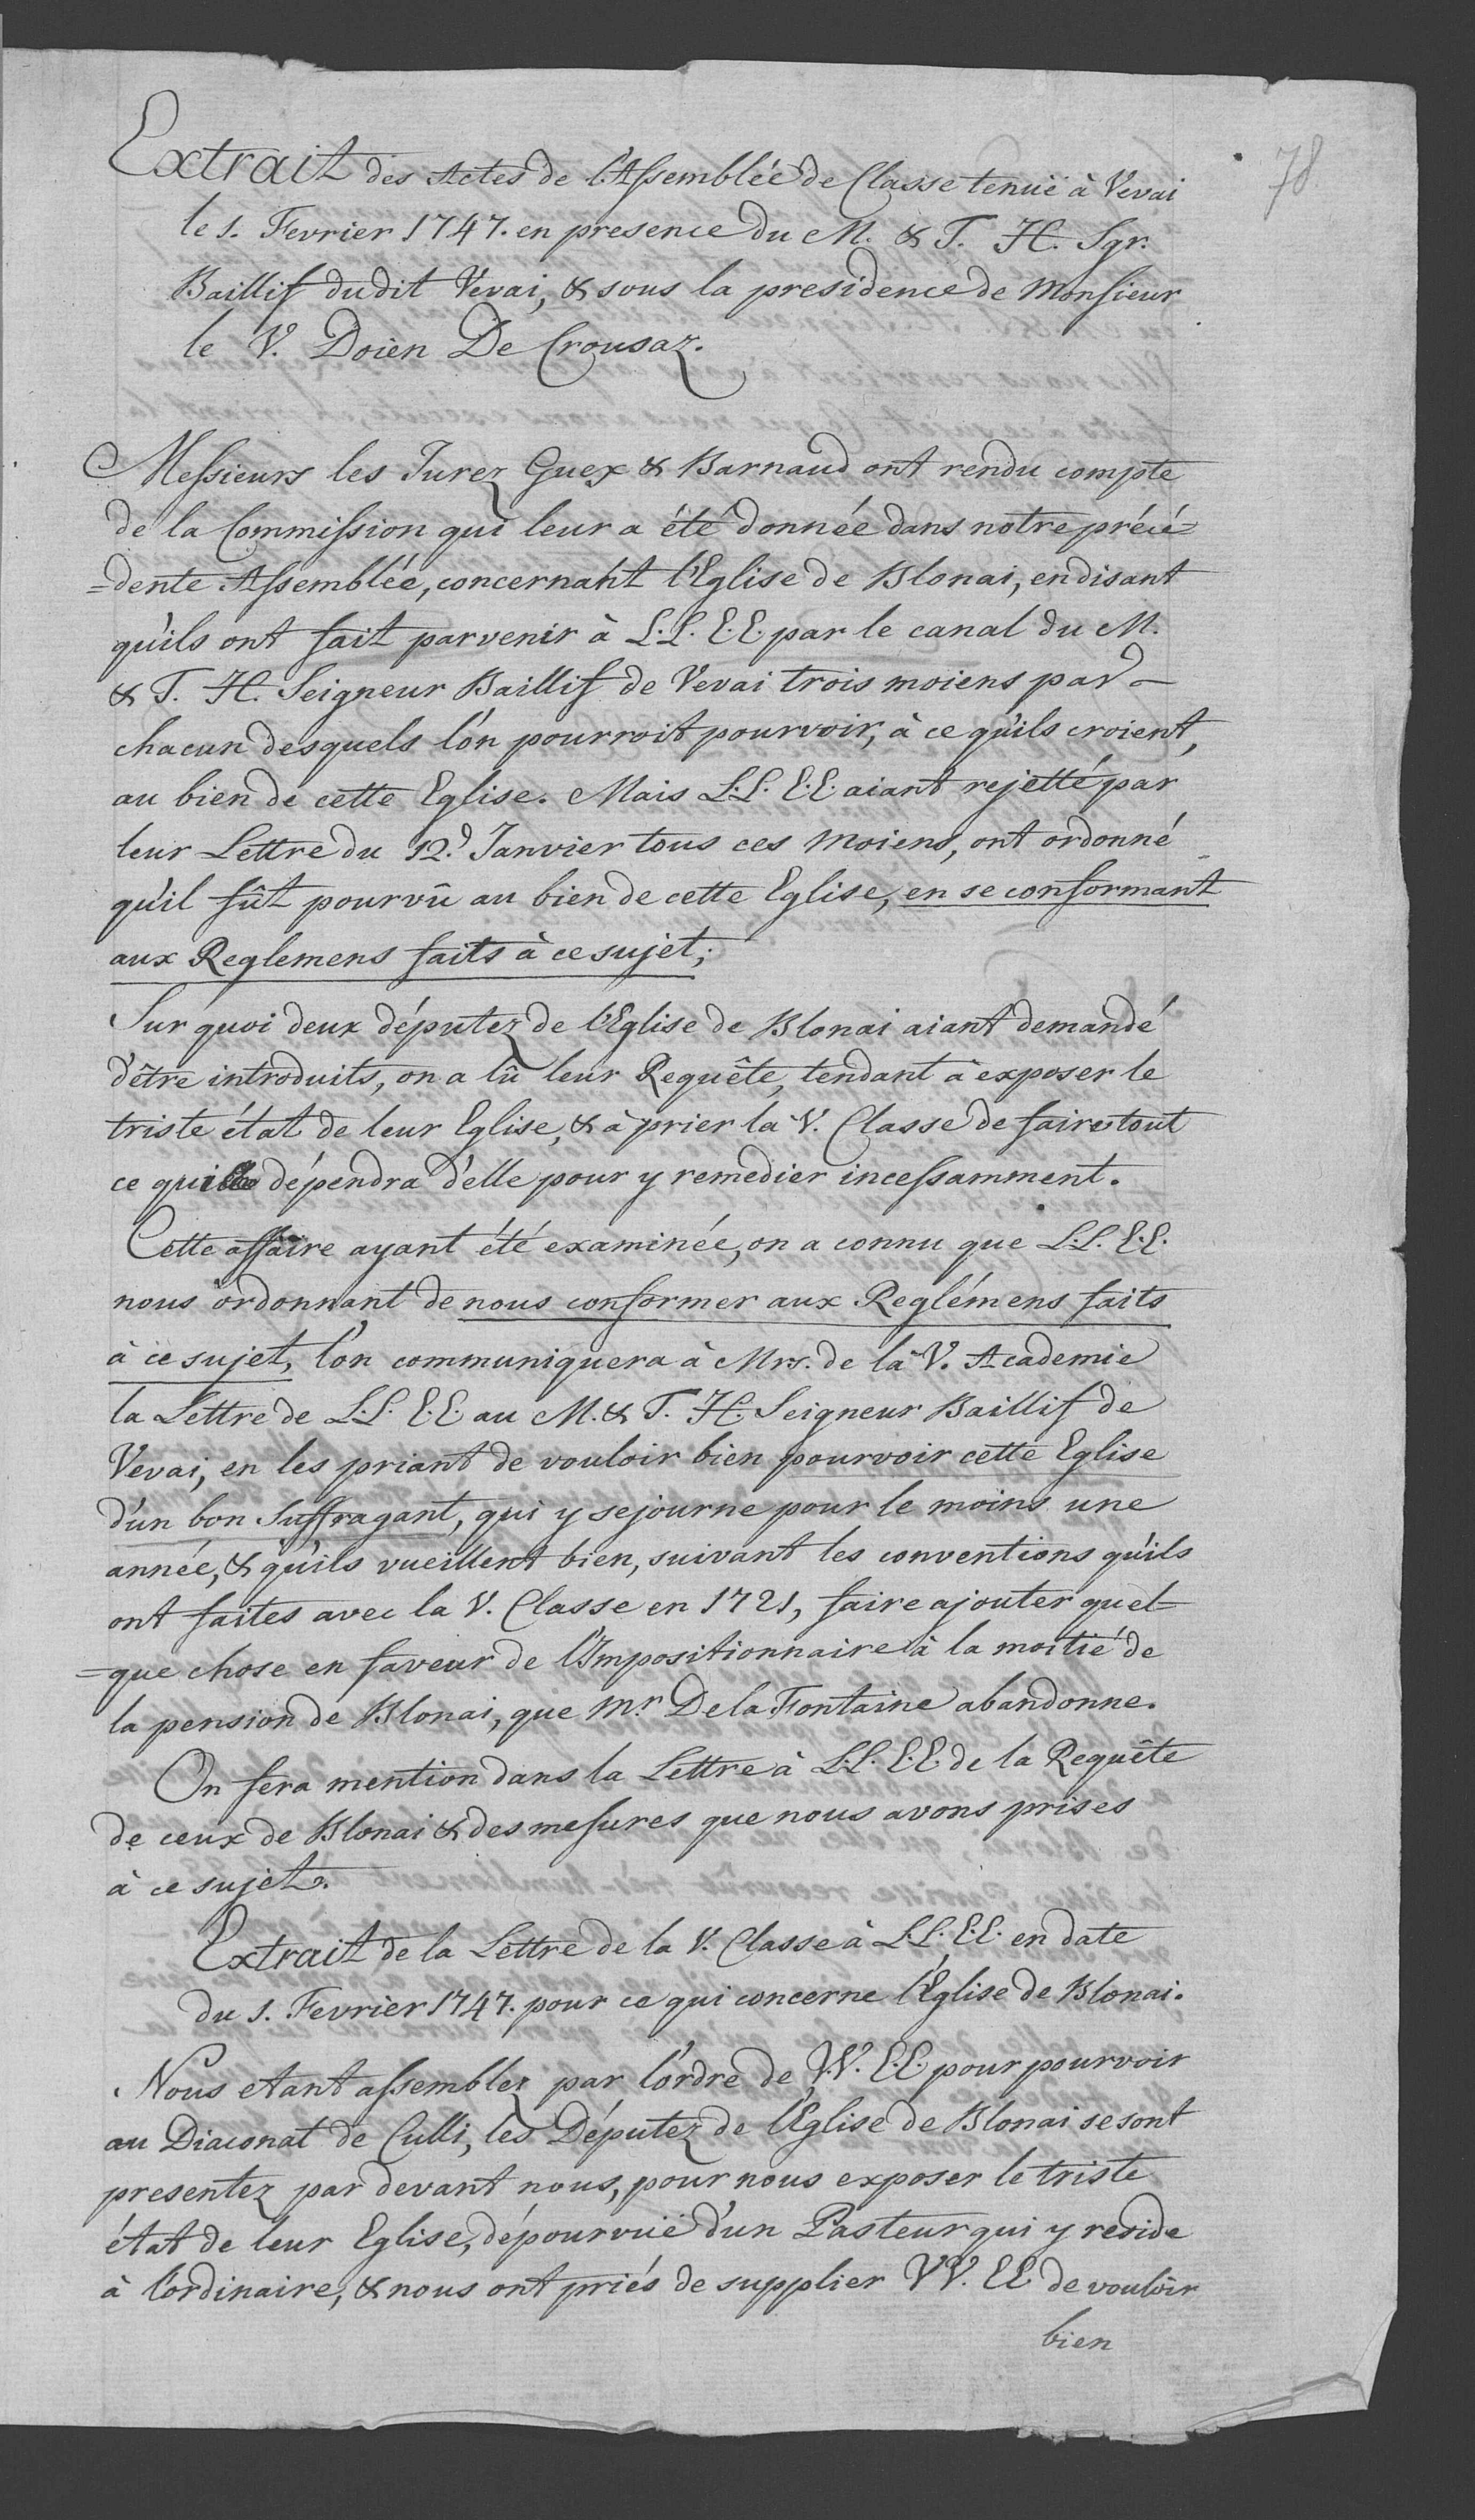 78
Extrait des Actes de l'Assemblée de Classe tenuë à Vevai
le 1. Fevrier 1747. en presence du M. & T. H. Sgr.
Baillif dudit Vevai, & sous la presidence de Monsieur
le V. Doïen De Crousaz.
Messieurs les Jurez Guex & Barnaud ont rendu compte
de la Commission qui leur a été donnée dans notre précé=
=dente Assemblée, concernant l'Eglise de Blonai, en disant
qu'ils ont fait parvenir à L.L. E.E. par le canal du M.
& T. H. Seigneur Baillif de Vevai trois moiens par
chacun desquels l'on pourroit pourvoir, à ce qu'ils croient,
au bien de cette Eglise. Mais L.L. E.E. aiant rejetté par
leur Lettre du 12.e Janvier tous ces moiens, ont ordonné
qu'il fût pourvû au bien de cette Eglise, en se conformant
aux Reglemens faits à ce sujet;
Sur quoi deux députez de l'Eglise de Blonai aiant demandé
d'être introduits, on a lû leur Requête, tendant à exposer le
triste état de leur Eglise, & à prier la V. Classe de faire tout
ce qui dépendra d'elle pour y remedier incessamment.
Cette affaire ayant été examinée, on a connu que L.L. E.E.
nous ordonnant de nous conformer aux Reglémens faits
à ce sujet, l'on communiquera à Mrs. de la V. Academie
la Lettre de L.L. E.E. au M. & T. H. Seigneur Baillif de
Vevai, en les priant de vouloir bien pourvoir cette Eglise
d'un bon Suffragant, qui y sejourne pour le moins une
année, & qu'ils vueillent bien, suivant les conventions qu'ils
ont faites avec la V. Classe en 1721, faire ajouter quel=
=que chose en faveur de l'Impositionnaire à la moitié de
la pension de Blonai, que Mr. De la Fontaine abandonne.
On fera mention dans la Lettre à L.L. E.E. de la Requête
de ceux de Blonai & des mesures que nous avons prises
à ce sujet.
Extrait de la Lettre de la V. Classe à L.L. E.E. en date
du 1. Fevrier 1747. pour ce qui concerne l'Eglise de Blonai.
Nous etant assemblez par l'ordre de V.V. E.E. pour pourvoir
au Diaconat de Culli, les Députez de l'Eglise de Blonai se sont
presentez par devant nous, pour nous exposer le triste
état de leur Eglise, dépourvuë d'un Pasteur qui y reside
à l'ordinaire, & nous ont priés de supplier VV. EE de vouloir
bien